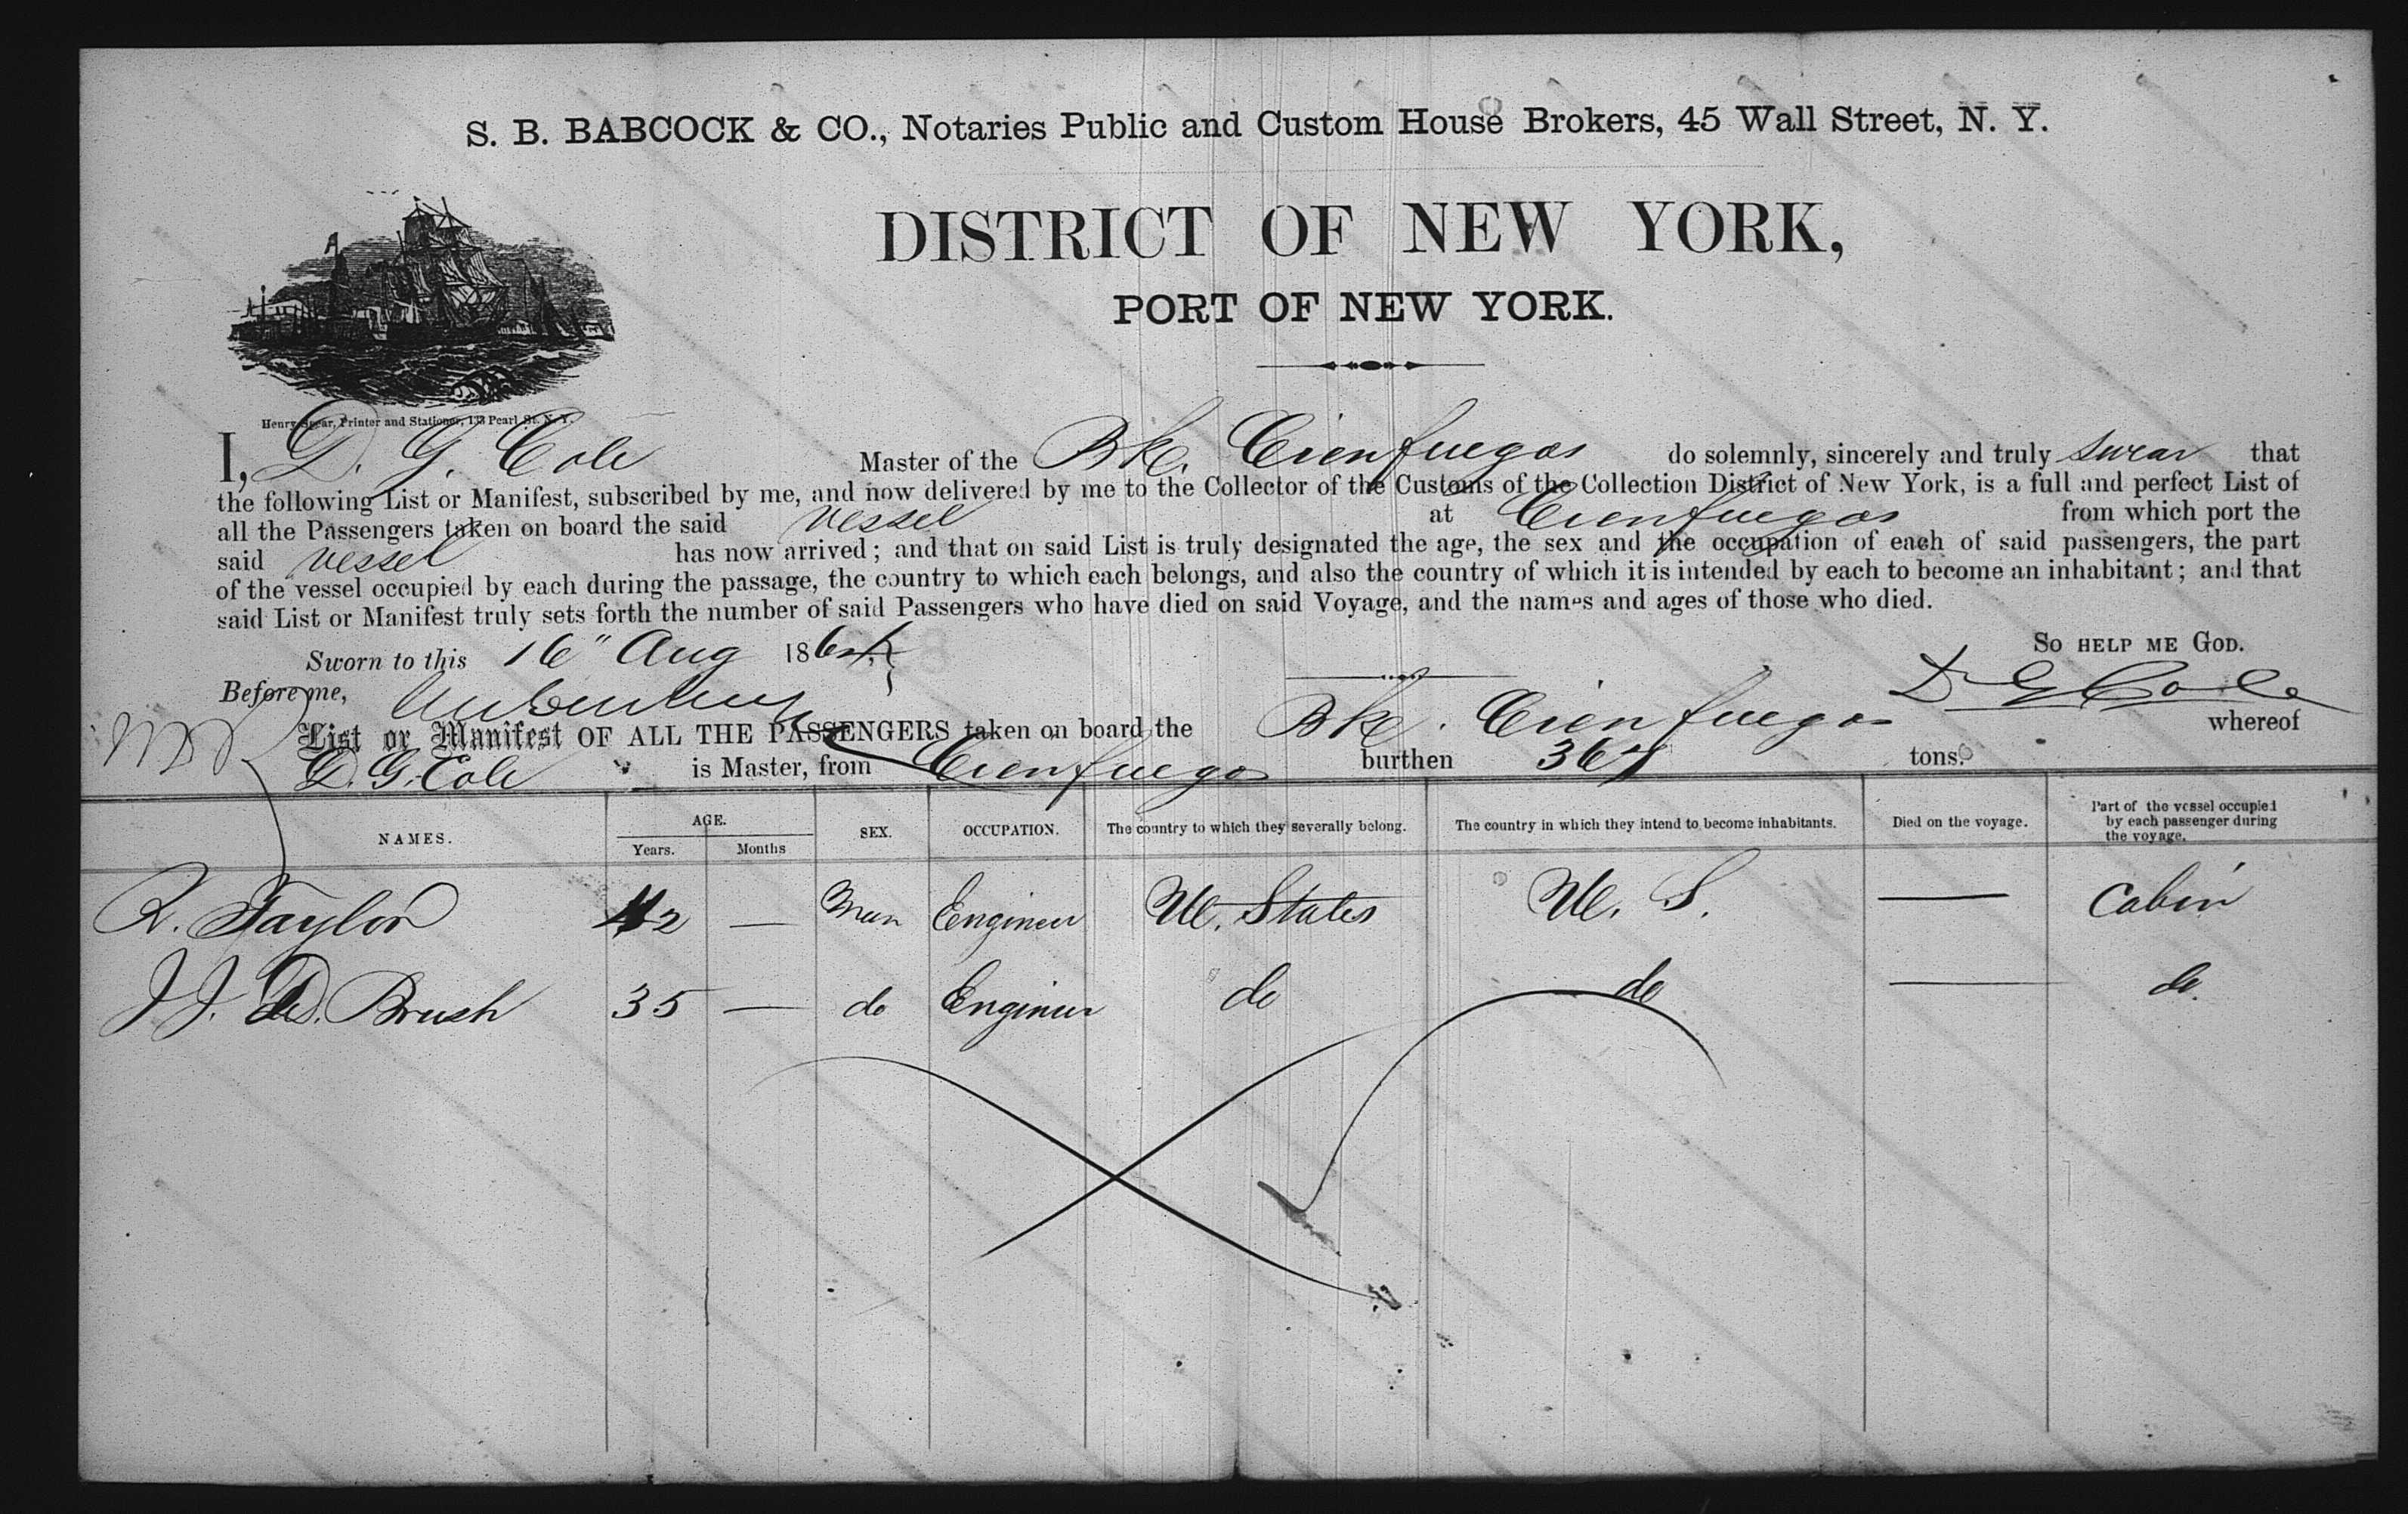 S. B. BABCOCK & CO., Notaries Public and Custom House Brokers, 45 Wall Street, N. Y.
DISTRICT OF NEW YORK,
PORT OF NEW YORK.
Henry Spear, Printer and Stationer, 133 Pearl St. N. Y.
I, D. G. Cole Master of the Bke. Cienfuegos do solemnly, sincerely and truly swear that
the following List or Manifest, subscribed by me, and now delivered by me to the Collector of the Customs of the Collection District of New York, is a full and perfect List of
all the Passengers taken on board the said vessel at Cienfuegos from which port the
said vessel has now arrived; and that on said List is truly designated the age, the sex and the occupation of each of said passengers, the part
of the vessel occupied by each during the passage, the country to which each belongs, and also the country of which it is intended by each to become an inhabitant; and that
said List or Manifest truly sets forth the number of said Passengers who have died on said Voyage, and the names and ages of those who died.
Sworn to this 16" Aug 186 SO HELP ME GOD.
Before me, D G Cole
List or Manifest OF ALL THE PASSENGERS taken on board the Bke. Cienfuegos whereof
D. G. Cole is Master, from Cienfuegos burthen tons.
NAMES. AGE. Years. Months SEX. OCCUPATION. The country to which they severally belong. The country in which they intend to become inhabitants. Died on the voyage. Part of the vessel occupied by each passenger during the voyage.
R. Taylor 42 — Man Engineer U. States U. S. — Cabin
J. J. D. Brush 35 — do Engineer do do — do.